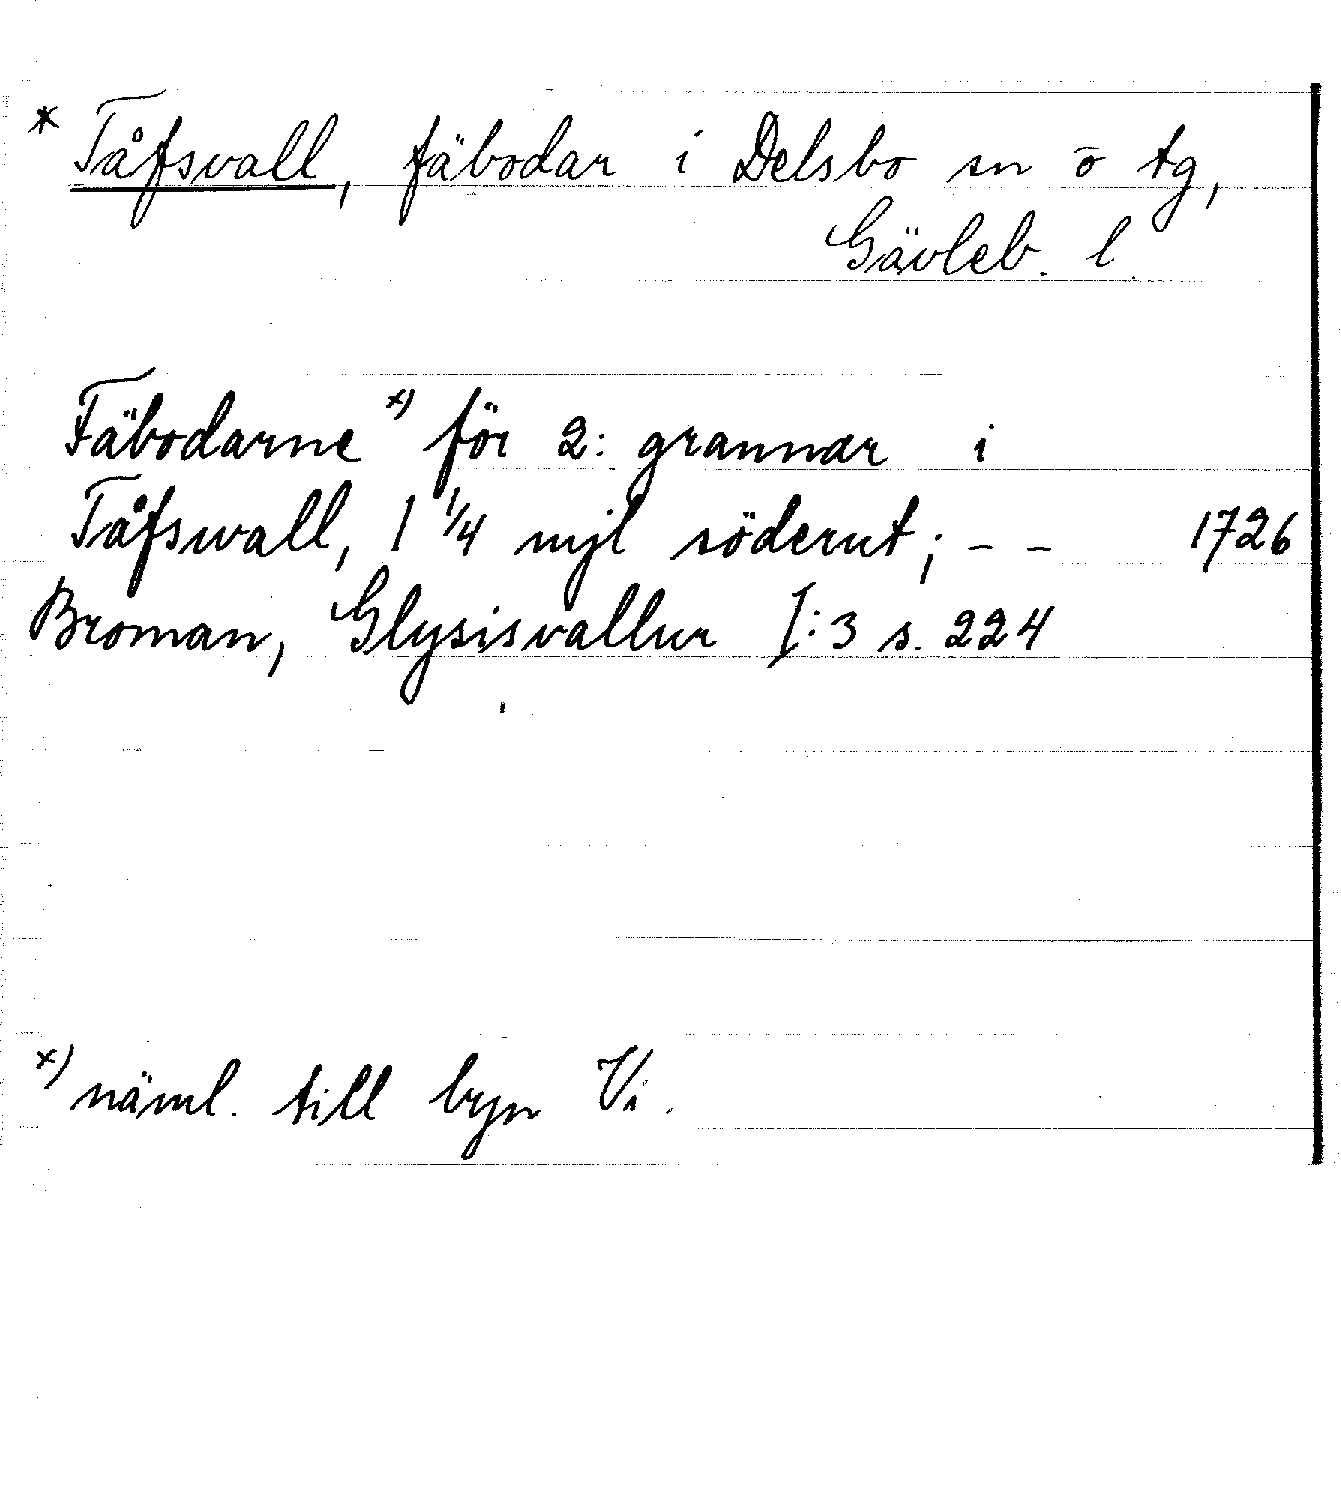 * Tåfsvall, fäbodar i Delsbo sn o tg,
Gävleb. l.
Fäbodarne x) för 2: grannar i
Tåfswall, 1 1/4 mjl söderut; - - 1726
Broman, Glysisvallur I:3 s. 224
x) näml. till byn Vi.